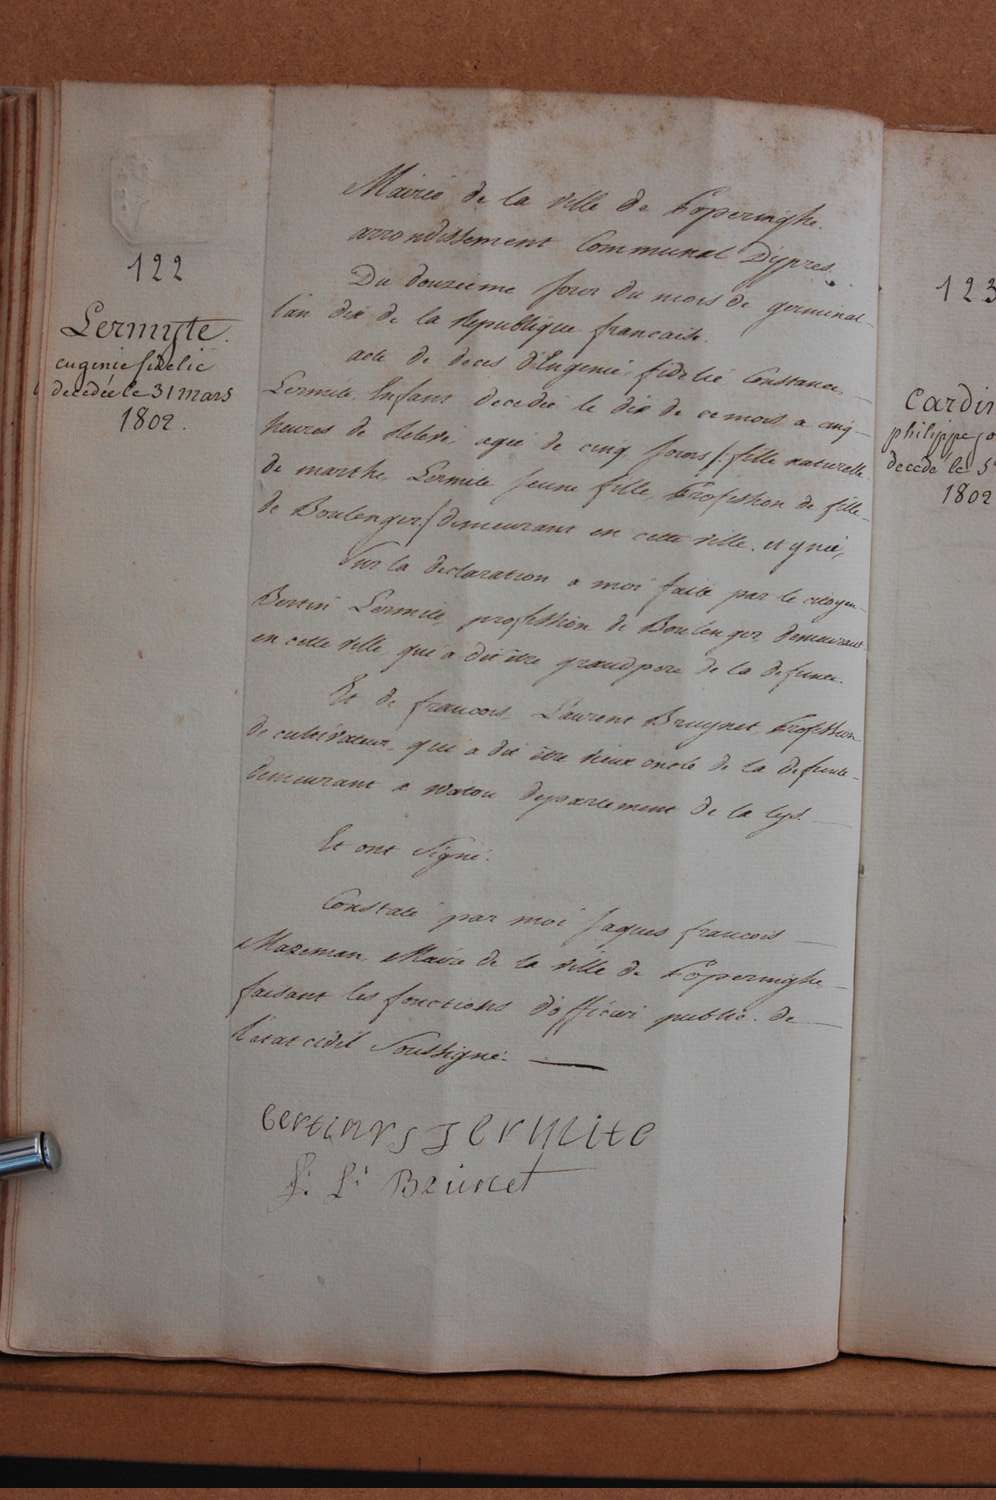 122
Lermyte.
eugenie fidelie
decedée le 31 mars
1802.
Mairie de la ville de Poperinghe.
arrondissement Communal D'ypres.
Du douzieme jour du mois de germinal
l'an dix de la Republique francaise.
acte de deces d'Eugenie fidelie Constance
Lermite Enfant decedée le dix de ce mois a cinq
heures de Relevé, agée de cinq jours /: fille naturelle
de marthe Lermite jeune fille, Profession de fille
de Boulenger/ demeurant en cette ville. et y née,
Sur la declaration a moi faite par le citoyen
Bertin Lermite, profession de Boulenger, demeurant
en cette ville qui a dit être grandpere de la defunte.
Et de francois Laurent Bruynet Profession
de cultivateur, qui a dit être vieux oncle de la defunte
Demeurant a watou departement de la lys.
Et ont Signé.
Constaté par moi Jaques francois
Mazeman Maire de la ville de Poperinghe
faisant les fonctions d'officier public de
l'etat civil Soussigné.
bertinvs Lermite
f: L: Brünet
123
Cardin
philippe jo
decedé le 5
1802